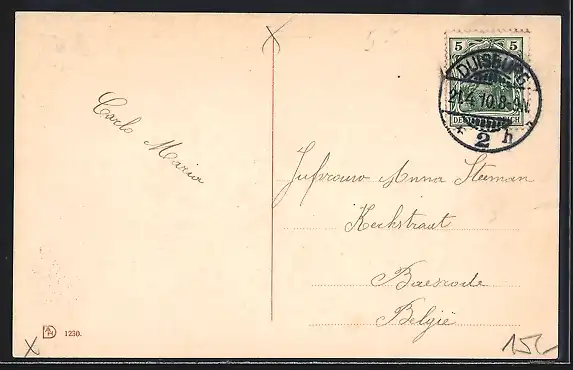 5 5
DUISBURG
21.4.10.8-9N.
* 2 h
DEUTSCHES REICH
Carlo Maria
Jufvrouw Anna Steeman
Kerkstraat
Baesrode
België
1230.
15.-